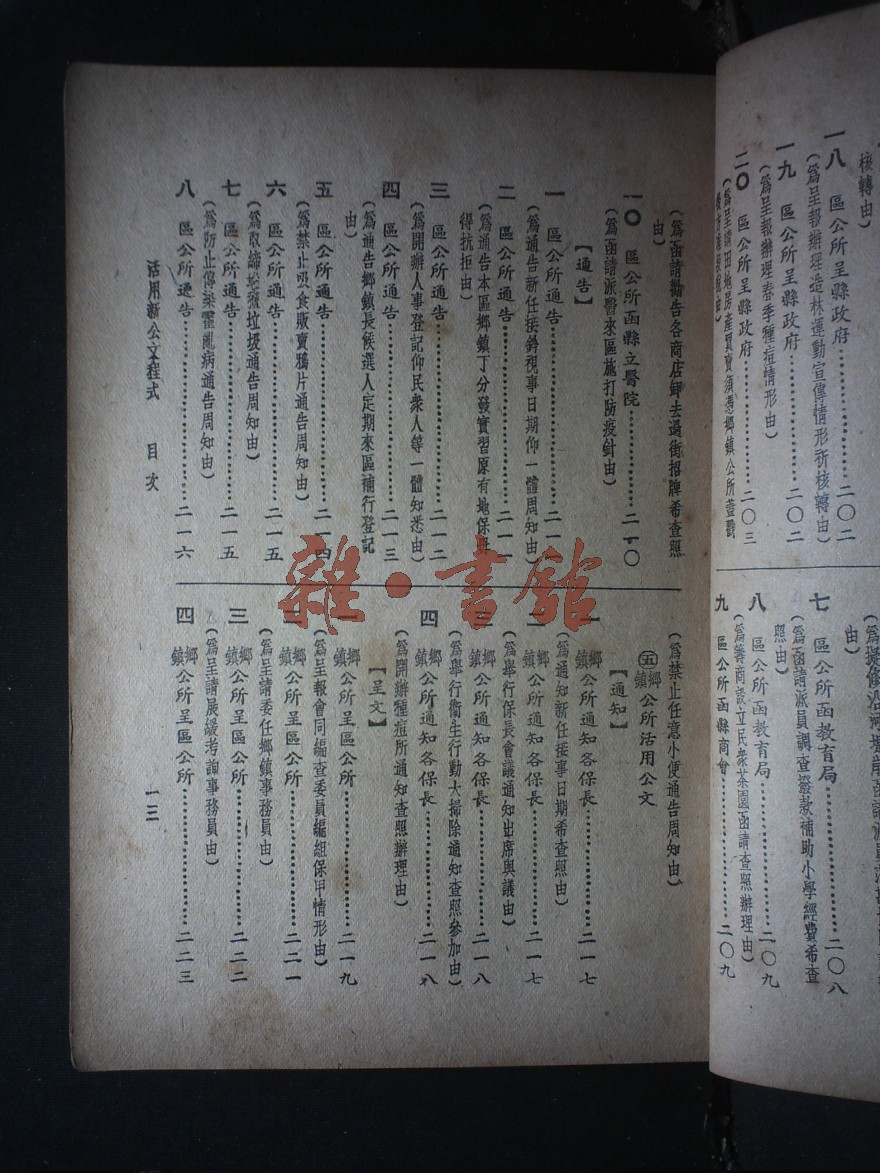 核轉由）
一八　區公所呈縣政府…………二〇二
（爲呈報辦理造林運動宣傳情形祈核轉由）
一九　區公所呈縣政府…………二〇二
（爲呈報辦理春季種痘情形由）
二〇　區公所呈縣政府…………二〇三
（爲呈請田地房產買賣須憑鄉鎮公所蓋戳
由）
七　區公所函教育局…………二〇八
（爲函請派員調查撥款補助小學經費希查
照由）
八　區公所函教育局…………二〇九
（爲籌商設立民衆茶園函請查照辦理由）
九　區公所函縣商會…………二〇九
（爲函請勸告各商店卸去過街招牌希查照
由）
一〇　區公所函縣立醫院…………二一〇
（爲函請派醫來區施打防疫針由）
【通告】
一　區公所通告…………二一一
（爲通告新任接鈐視事日期仰一體周知由）
二　區公所通告…………二一一
（爲通告本區鄉鎮丁分發實習原有地保
得抗拒由）
三　區公所通告…………二一二
（爲開辦人事登記仰民衆人等一體知悉由）
四　區公所通告…………二一三
（爲通告鄉鎮長候選人定期來區補行登記
由）
五　區公所通告…………二一四
（爲禁止吸食販賣鴉片通告周知由）
六　區公所通告…………二一五
（爲取締垃圾通告周知由）
七　區公所通告…………二一五
（爲防止傳染霍亂病通告周知由）
八　區公所通告…………二一六
（爲禁止任意小便通告周知由）
㊄鄉鎮公所活用公文
【通知】
一　鄉鎮公所通知各保長…………二一七
（爲通知新任接事日期希查照由）
二　鄉鎮公所通知各保長…………二一七
（爲舉行保長會議通知出席與議由）
三　鄉鎮公所通知各保長…………二一八
（爲舉行衛生行動大掃除通知查照參加由）
四　鄉鎮公所通知各保長…………二一八
（爲開辦種痘所通知查照辦理由）
【呈文】
一　鄉鎮公所呈區公所…………二一九
（爲呈報會同編查委員編組保甲情形由）
二　鄉鎮公所呈區公所…………二二一
（爲呈請委任鄉鎮事務員由）
三　鄉鎮公所呈區公所…………二二二
（爲呈請展緩考詢事務員由）
四　鄉鎮公所呈區公所…………二二三
活用新公文程式　目次
一三
雜·書館